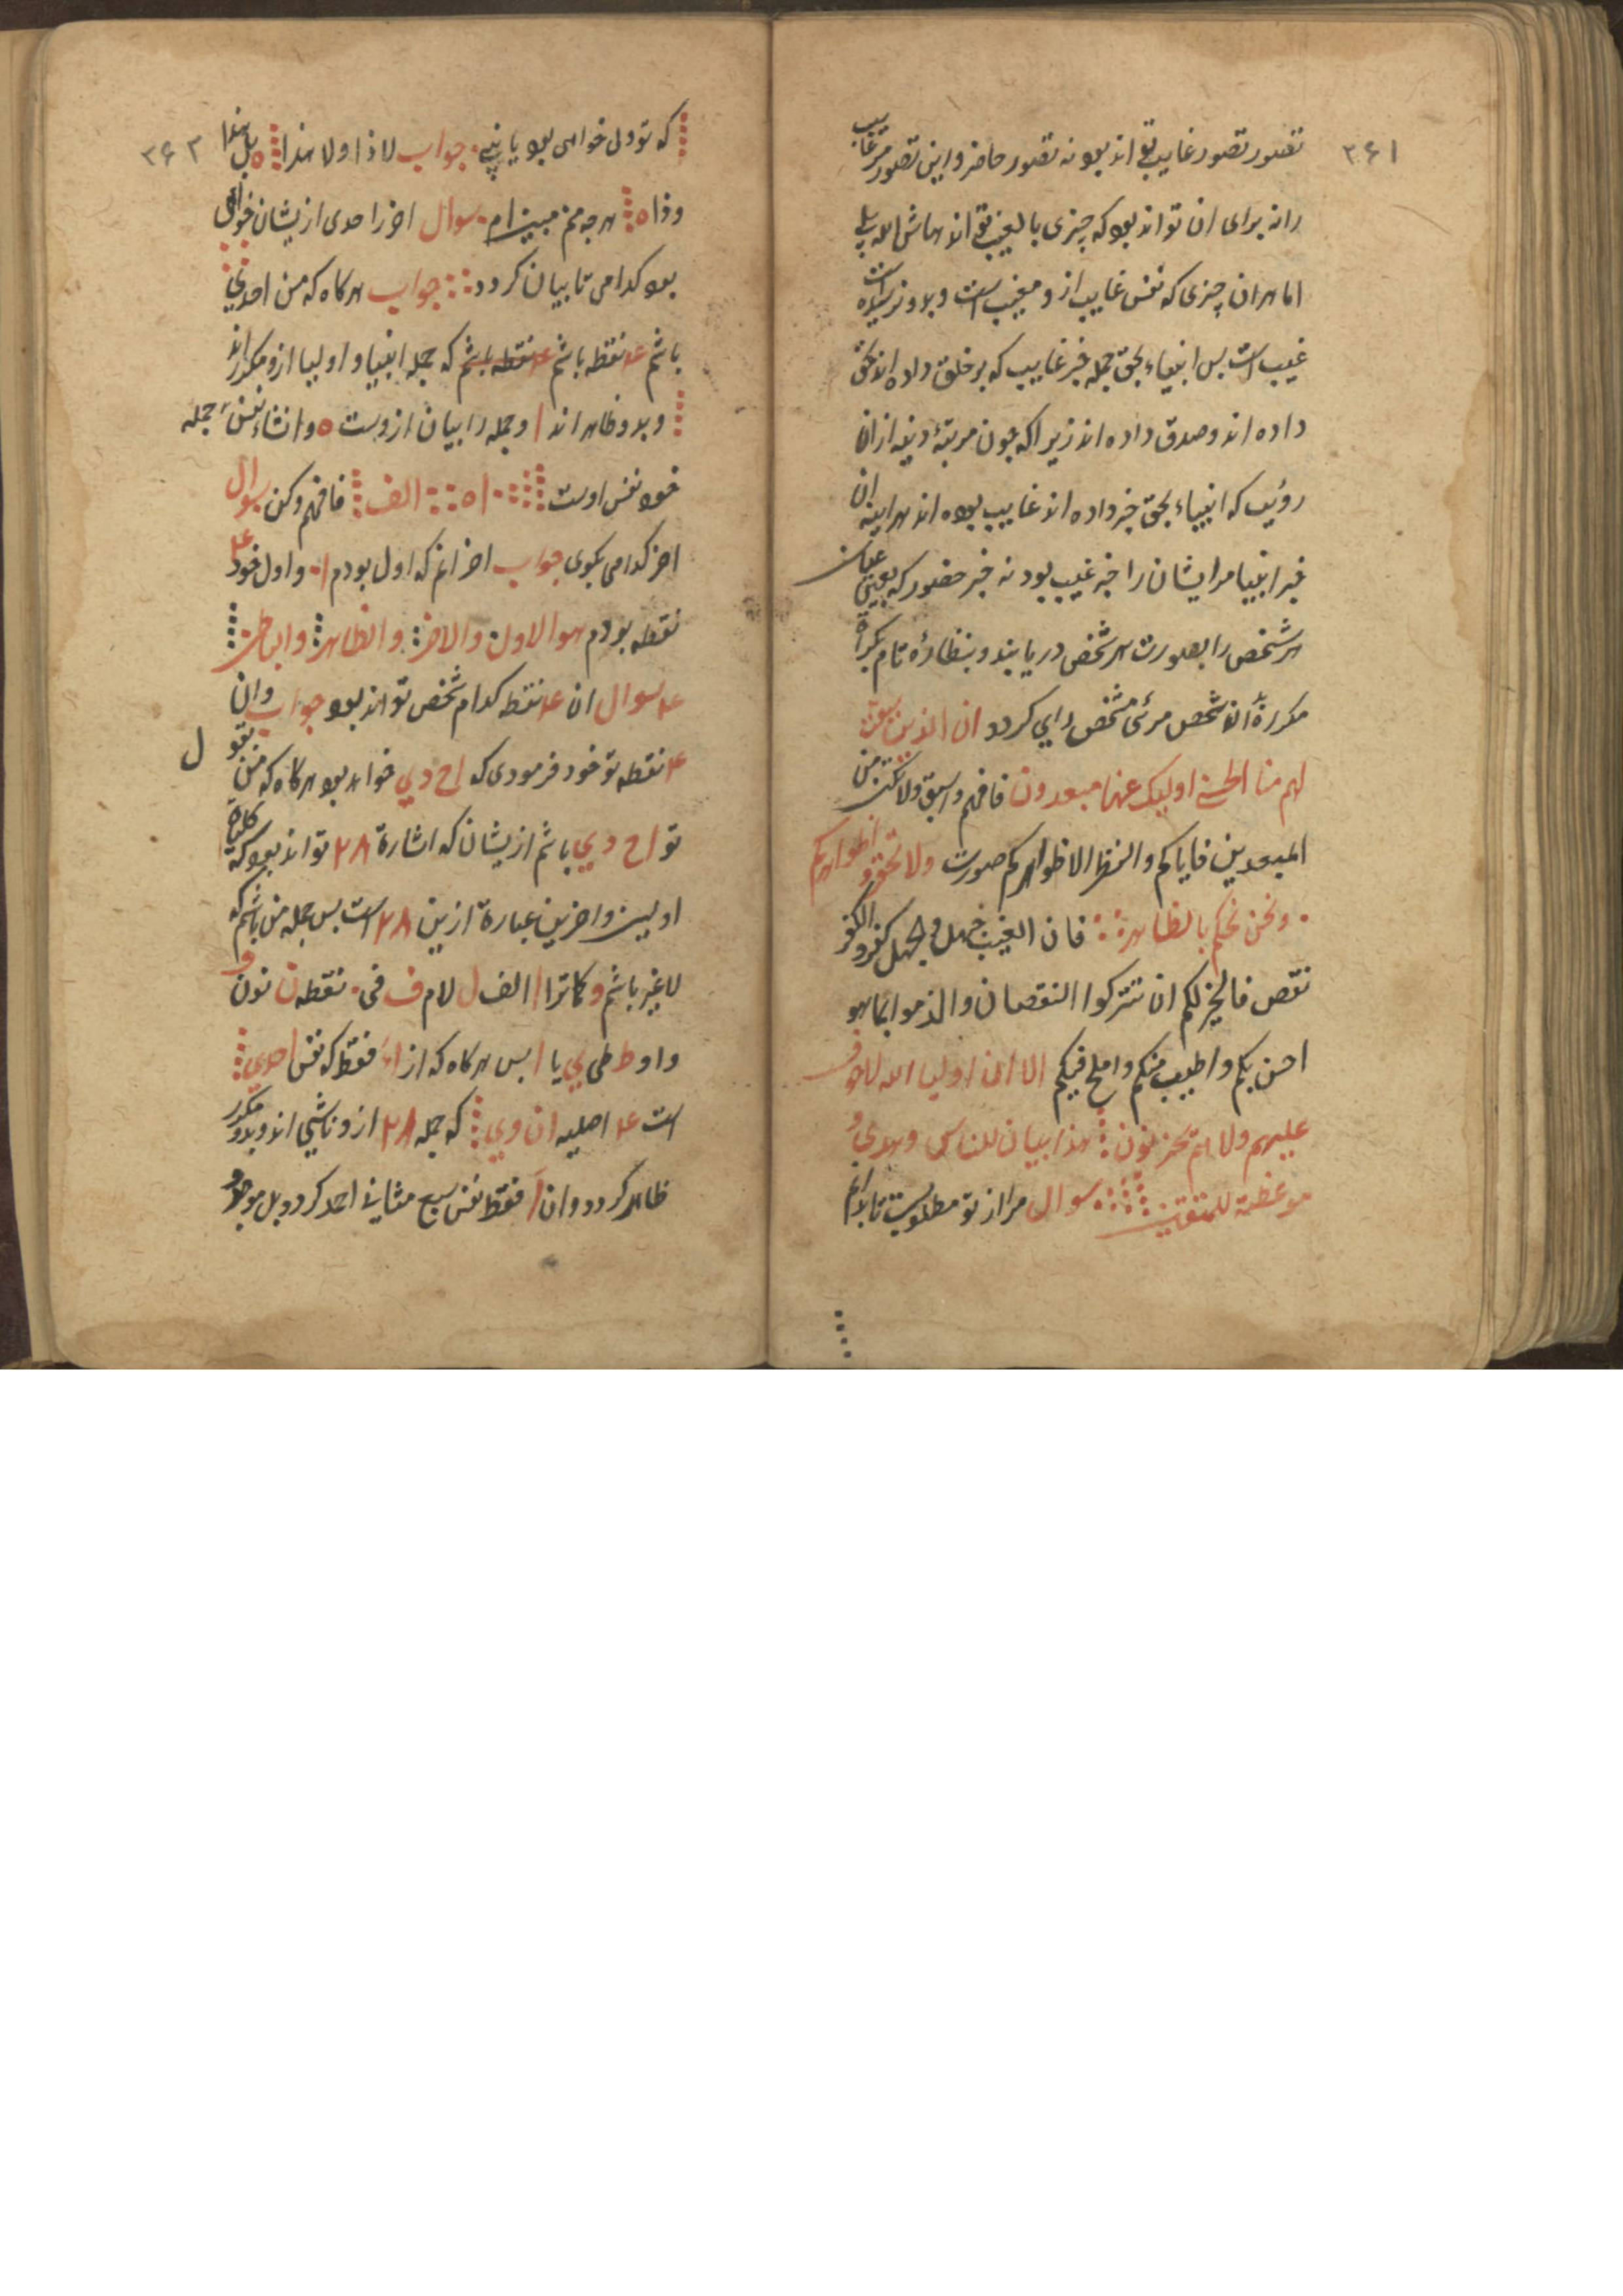 ۳۶۱
تصور تصور غایب تواند بود نه تصور حاضر و این تصور مر غایب
را نه برای ان تواند بود که چیزی بالغیب تواند
اما هر ان چیزی که نفس غایب ازو مغیب است و بدو نرسیده است
غیب است بس انبیاء بحق جمله خبر غایب که بر خلق داده اند بحق
داده اند و صدق داده اند زیرا که چون مرتبۀ دینه از ان
رؤیت که انبیاء بحق خبر داده اند غایب بوده اند هراینه ان
خبر انبیا مر ایشان را خبر غیب بود نه خبر حضور که بعینی عیان
هر شخص را بصورت هر شخص دریابند و بنظارۀ تام بکرة
مکررة ان شخص مرئی مشخص رایی کردد ان الذین سبقت
لهم منا الحسنی اولیک عنها مبعدون فافهم واسبق ولا تکن من
المبعدین فایاکم والنظر الا ظواهرکم صورت ولا تحقروا ظواهرکم
۰ ونحن نحکم بالظاهر فان الغیب جهل والجهل کفر والکفر
نقص فالخیر لکم ان تترکوا النقصان والذموا بما هو
احسن بکم واطیب منکم واملح فیکم الا ان اولیا الله لا خوف
علیهم ولا هم یحزنون هذا بیان للناس وهدی و
موعظة للمتقین سوال مرا از تو مطلوبیست تا بدانم
۳۶۲
که تو دل خواهی بود یا نی جواب لا ذا ولا هذا ه بل هذا
وذا ه هر چه منم مبین ام سوال اخر احدی ازیشان خواهی
بود کدامی تا بیان کردد جواب هرکاه که من احدی
باشم ع نقطه باشم ع نقطه باشم که جمله انبیا و اولیا ازو مکرر اند
و بدو ظاهر اند ا و جمله را بیان ازوست ه و انشاء نفس جمله
خود نفس اوست ا ه الف فافهم وکن سوال
اخر کدامی بکوی جواب اخر انم که اول بودم ا و اول خود ع
نقطه بودم هو الاول والاخر والظاهر والباطن
ع سوال ان ع نقطه کدام شخص تواند بود جواب و ان
ع نقطه تو خود فرمودی که اح دی خواهد بود هرکاه که من بقول
تو اح دی باشم ازیشان که اشارة ۲۸ تواند بود که کلمات
اولین و اخرین عبارة ازین ۲۸ است بس جمله من باشم که
لا غیر باشم و کاترا ا الف ل لام ف فی ۰ نقطه ن نون و
واو ط طی ی یا ا بس هرکاه که از ا فقط که نفس احدی
است ع اصلیه ان وی که جمله ۲۸ ازو ناشی اند و بدو مکرر
ظاهر کردد و ان ا فقط نفس سبع مثانی احمد کردد بل موجود